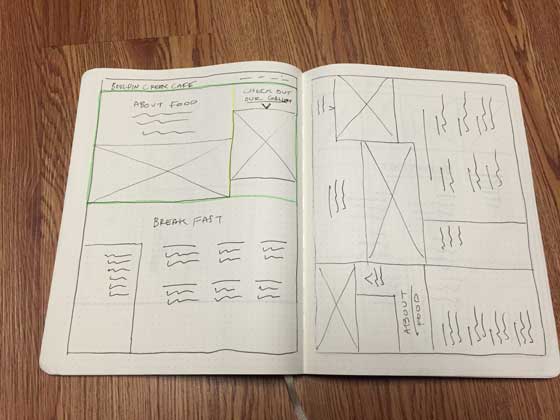 BOULDIN CREEK CAFE
ABOUT FOOD
CHECK OUT
OUR GALLERY
BREAK FAST
ABOUT
FOOD